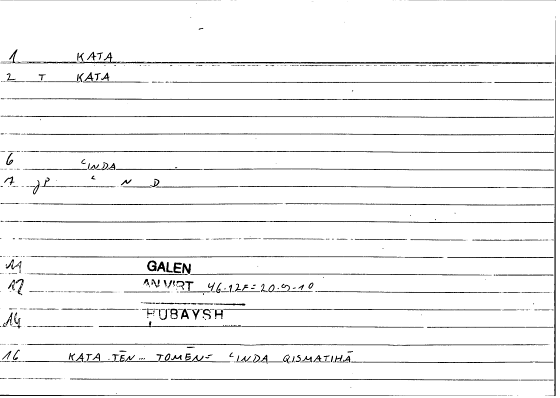 1 KATA
2 T KATA
6 ʿINDA
7 JP ʿ N D
11 GALEN
12 AN VIRT 46.12F=20.9-10
14 HUBAYSH
16 KATA TĒN... TOMĒN= ʿINDA QISMATIHĀ